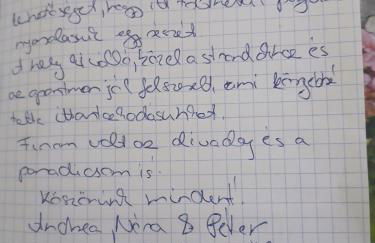 lehetőséget, hogy itt
nyaralásunk egy részét
A hely ideális, közel a strandhoz és
az apartman jól felszerelt, ami könnyebbé
tette itt tartózkodásunkat.
Finom volt az és a
paradicsom is.
Köszönünk mindent!
Andrea Nóra & Péter